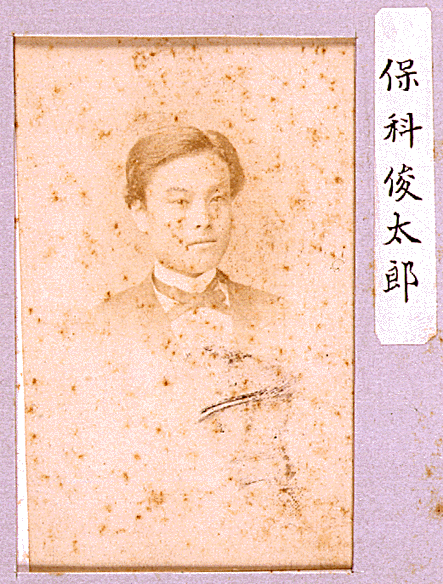 保科俊太郎